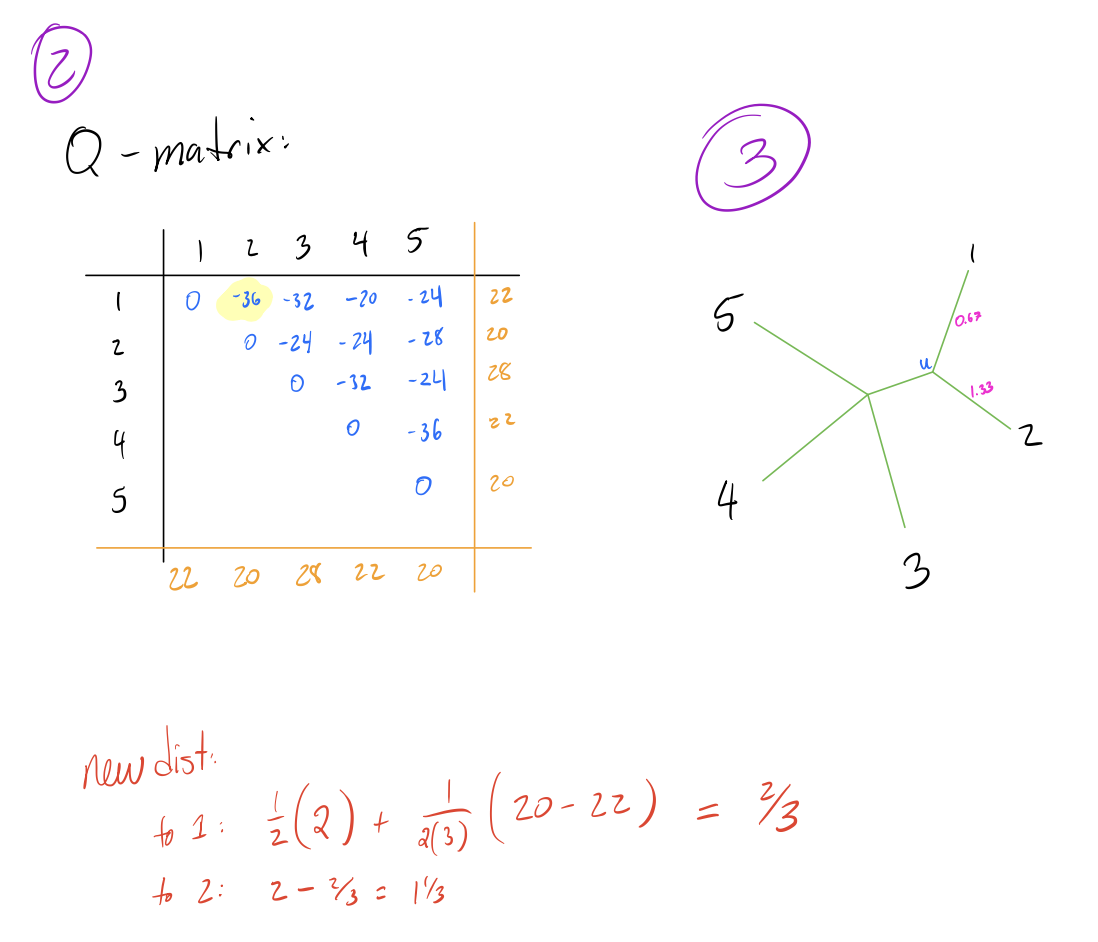 2
Q-matrix:
1 2 3 4 5
1 0 -36 -32 -20 -24 22
2 0 -24 -24 -28 20
3 0 -32 -24 28
4 0 -36 22
5 0 20
22 20 28 22 20
3
1
5
0.67
u
1.33
2
4
3
new dist:
to 1: 1/2(2) + 1/2(3) (20-22) = 2/3
to 2: 2 - 2/3 = 1 1/3